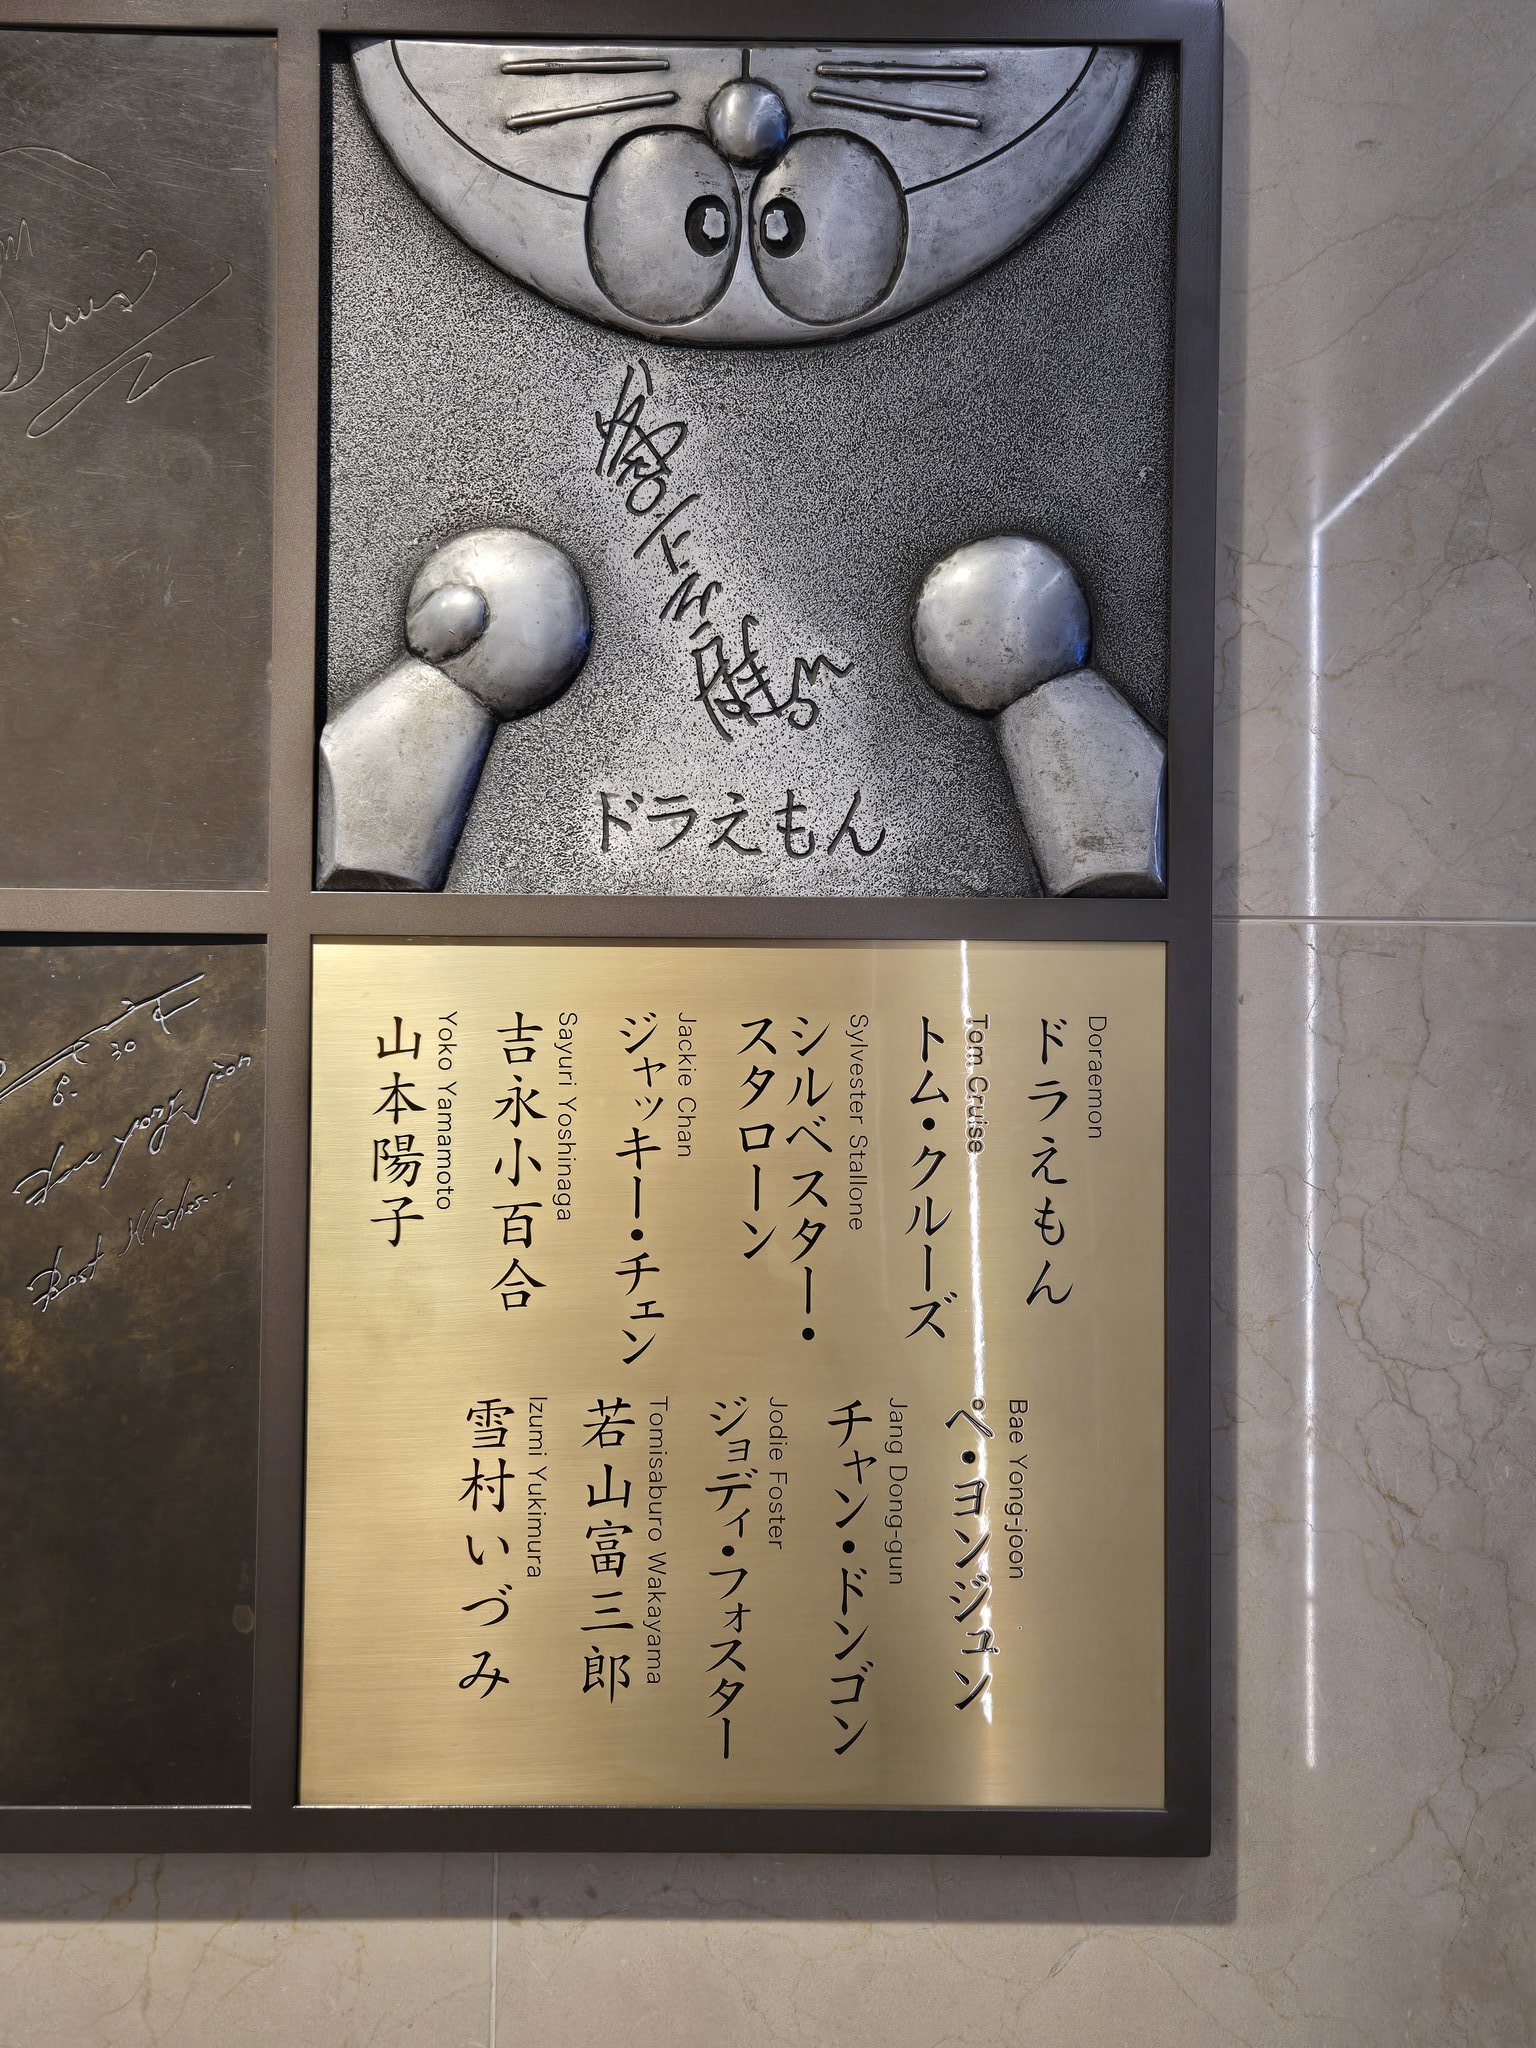 ドラえもん
Doraemon
ドラえもん
Tom Cruise
トム・クルーズ
Sylvester Stallone
シルベスター・
スタローン
Jackie Chan
ジャッキー・チェン
Sayuri Yoshinaga
吉永小百合
Yoko Yamamoto
山本陽子
Bae Yong-joon
ペ・ヨンジュン
Jang Dong-gun
チャン・ドンゴン
Jodie Foster
ジョディ・フォスター
Tomisaburo Wakayama
若山富三郎
Izumi Yukimura
雪村いづみ
Best Wishes...